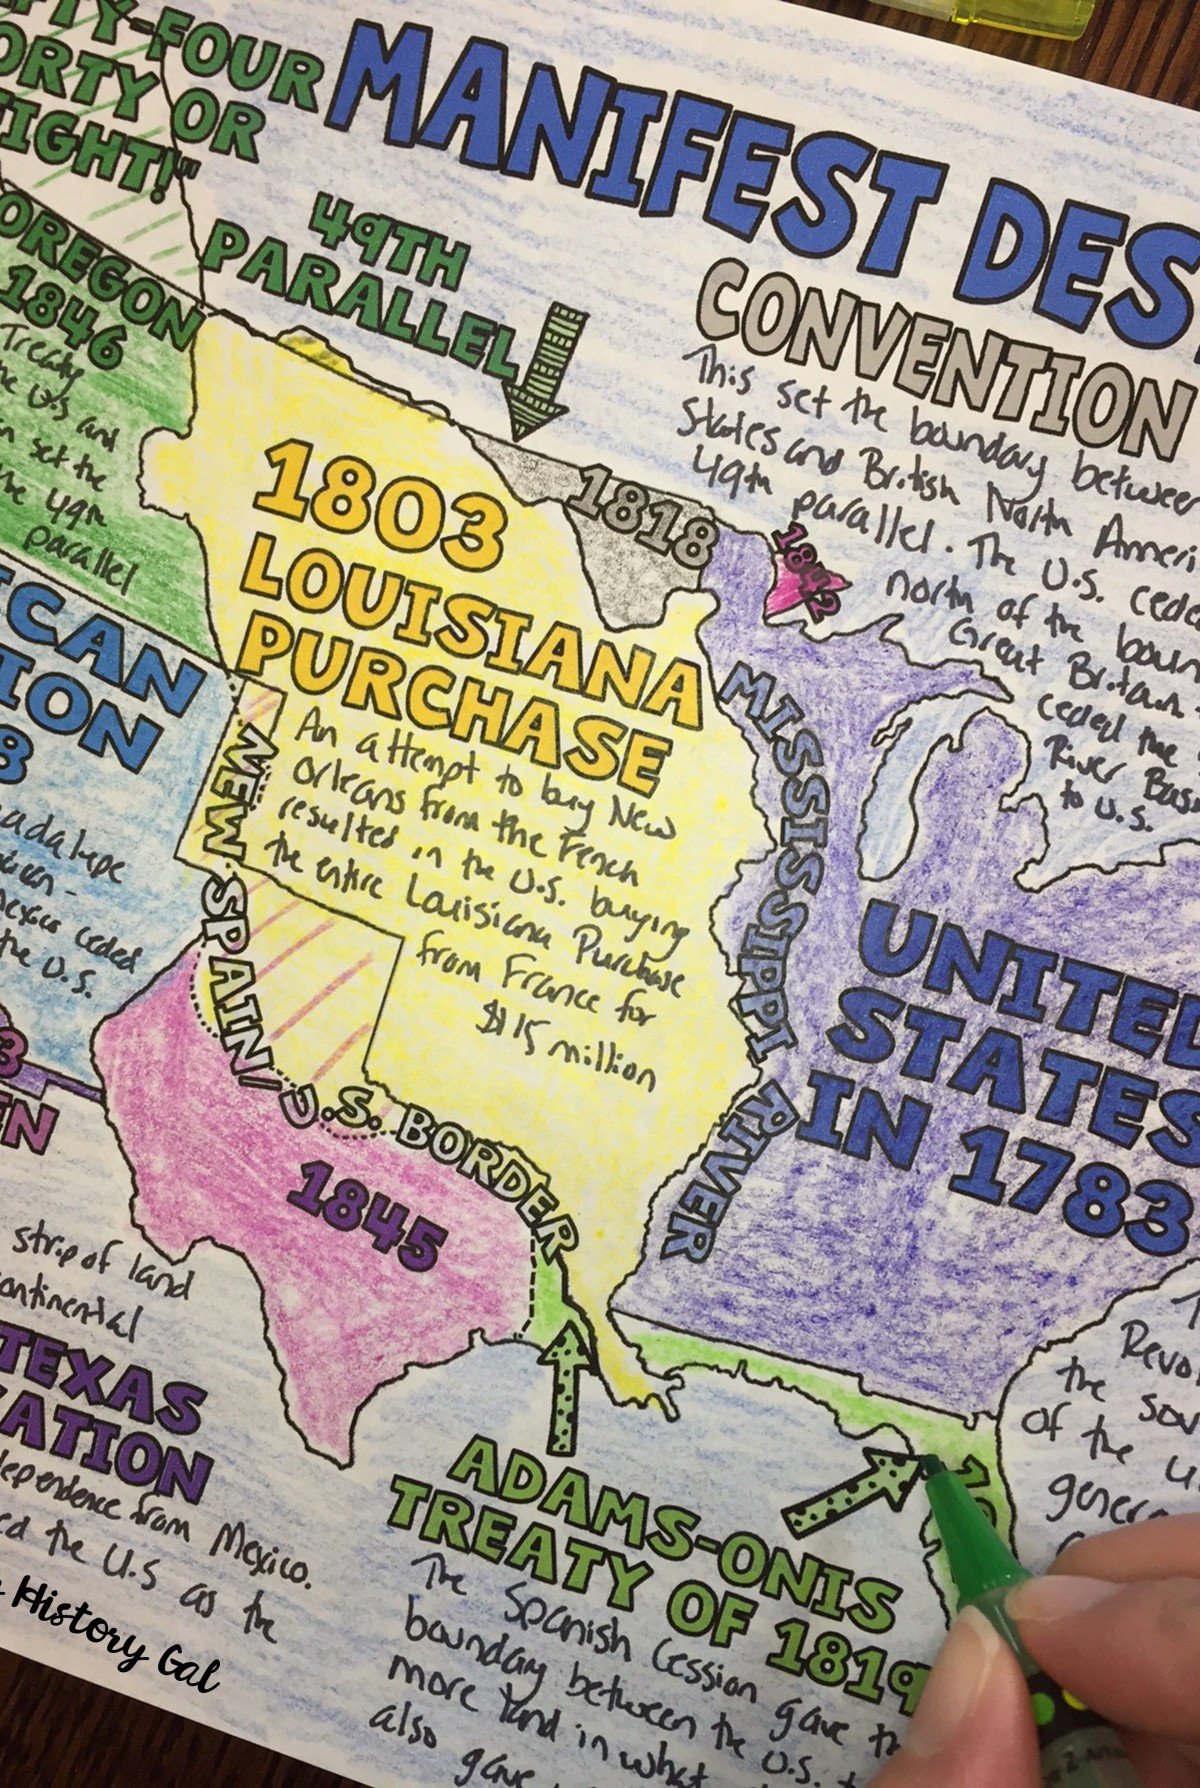 FTY-FOUR
ORTY OR
FIGHT!"
MANIFEST DES
49TH
PARALLEL
OREGON
1846
Treaty
the U.S and
set the
the 49th
parallel
CONVENTION
This set the boundary between
States and British North Ameri
49th parallel. The U.S. ceded
north of the boun
Great Britain.
ceded the
River Basi
to U.S.
1818
1842
1803
LOUISIANA
PURCHASE
An attempt to buy New
Orleans from the French
resulted in the U.S. buying
the entire Louisiana Purchase
from France for
$15 million
ICAN
ION
8
adalupe
Mexico ceded
the U.S.
NEW SPAIN/U.S. BORDER
MISSISSIPPI RIVER
UNITED
STATES
IN 1783
3
EN
strip of land
continental
1845
TEXAS
XATION
dependence from Mexico.
ed the U.S as the
History Gal
ADAMS-ONIS
TREATY OF 1819
The Spanish Cession gave th
boundary between the U.S.
more land in what
also gave
Revol
the sou
of the U
genera